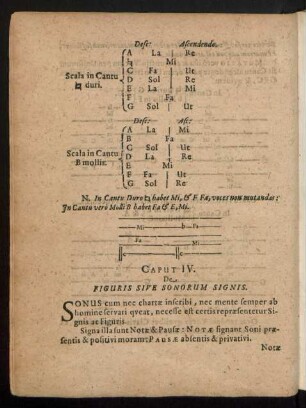 Desc: Ascendendo.
A La | Re
♮ Mi
Scala in Cantu C Fa | Ut
♮ duri. D Sol | Re
E La | Mi
F Fa | Ut
G Sol | Ut
Desc: Asc:
A La | Mi
B Fa
Scala in Cantu C Sol | Ut
B mollir. D La | Re
E Mi
F Fa | Ut
G Sol | Re
N. In Cantu Duro ♮ habet Mi, & F. Fa, voces non mutandas:
In Cantu verò Molli B habet Fa & E, Mi.
Mi b Fa
Fa Mi
CAPUT IV.
De
FIGURIS SIVE SONORUM SIGNIS.
SONUS cum nec chartæ inscribi, nec mente semper ab
homine servari qveat, necesse est certis repræsentetur Si-
gnis ac Figuris
Signa illa sunt Notæ & Pausæ: NOTÆ signant Soni præ-
sentis & positivi moram: PAUSÆ absentis & privativi.
Notæ